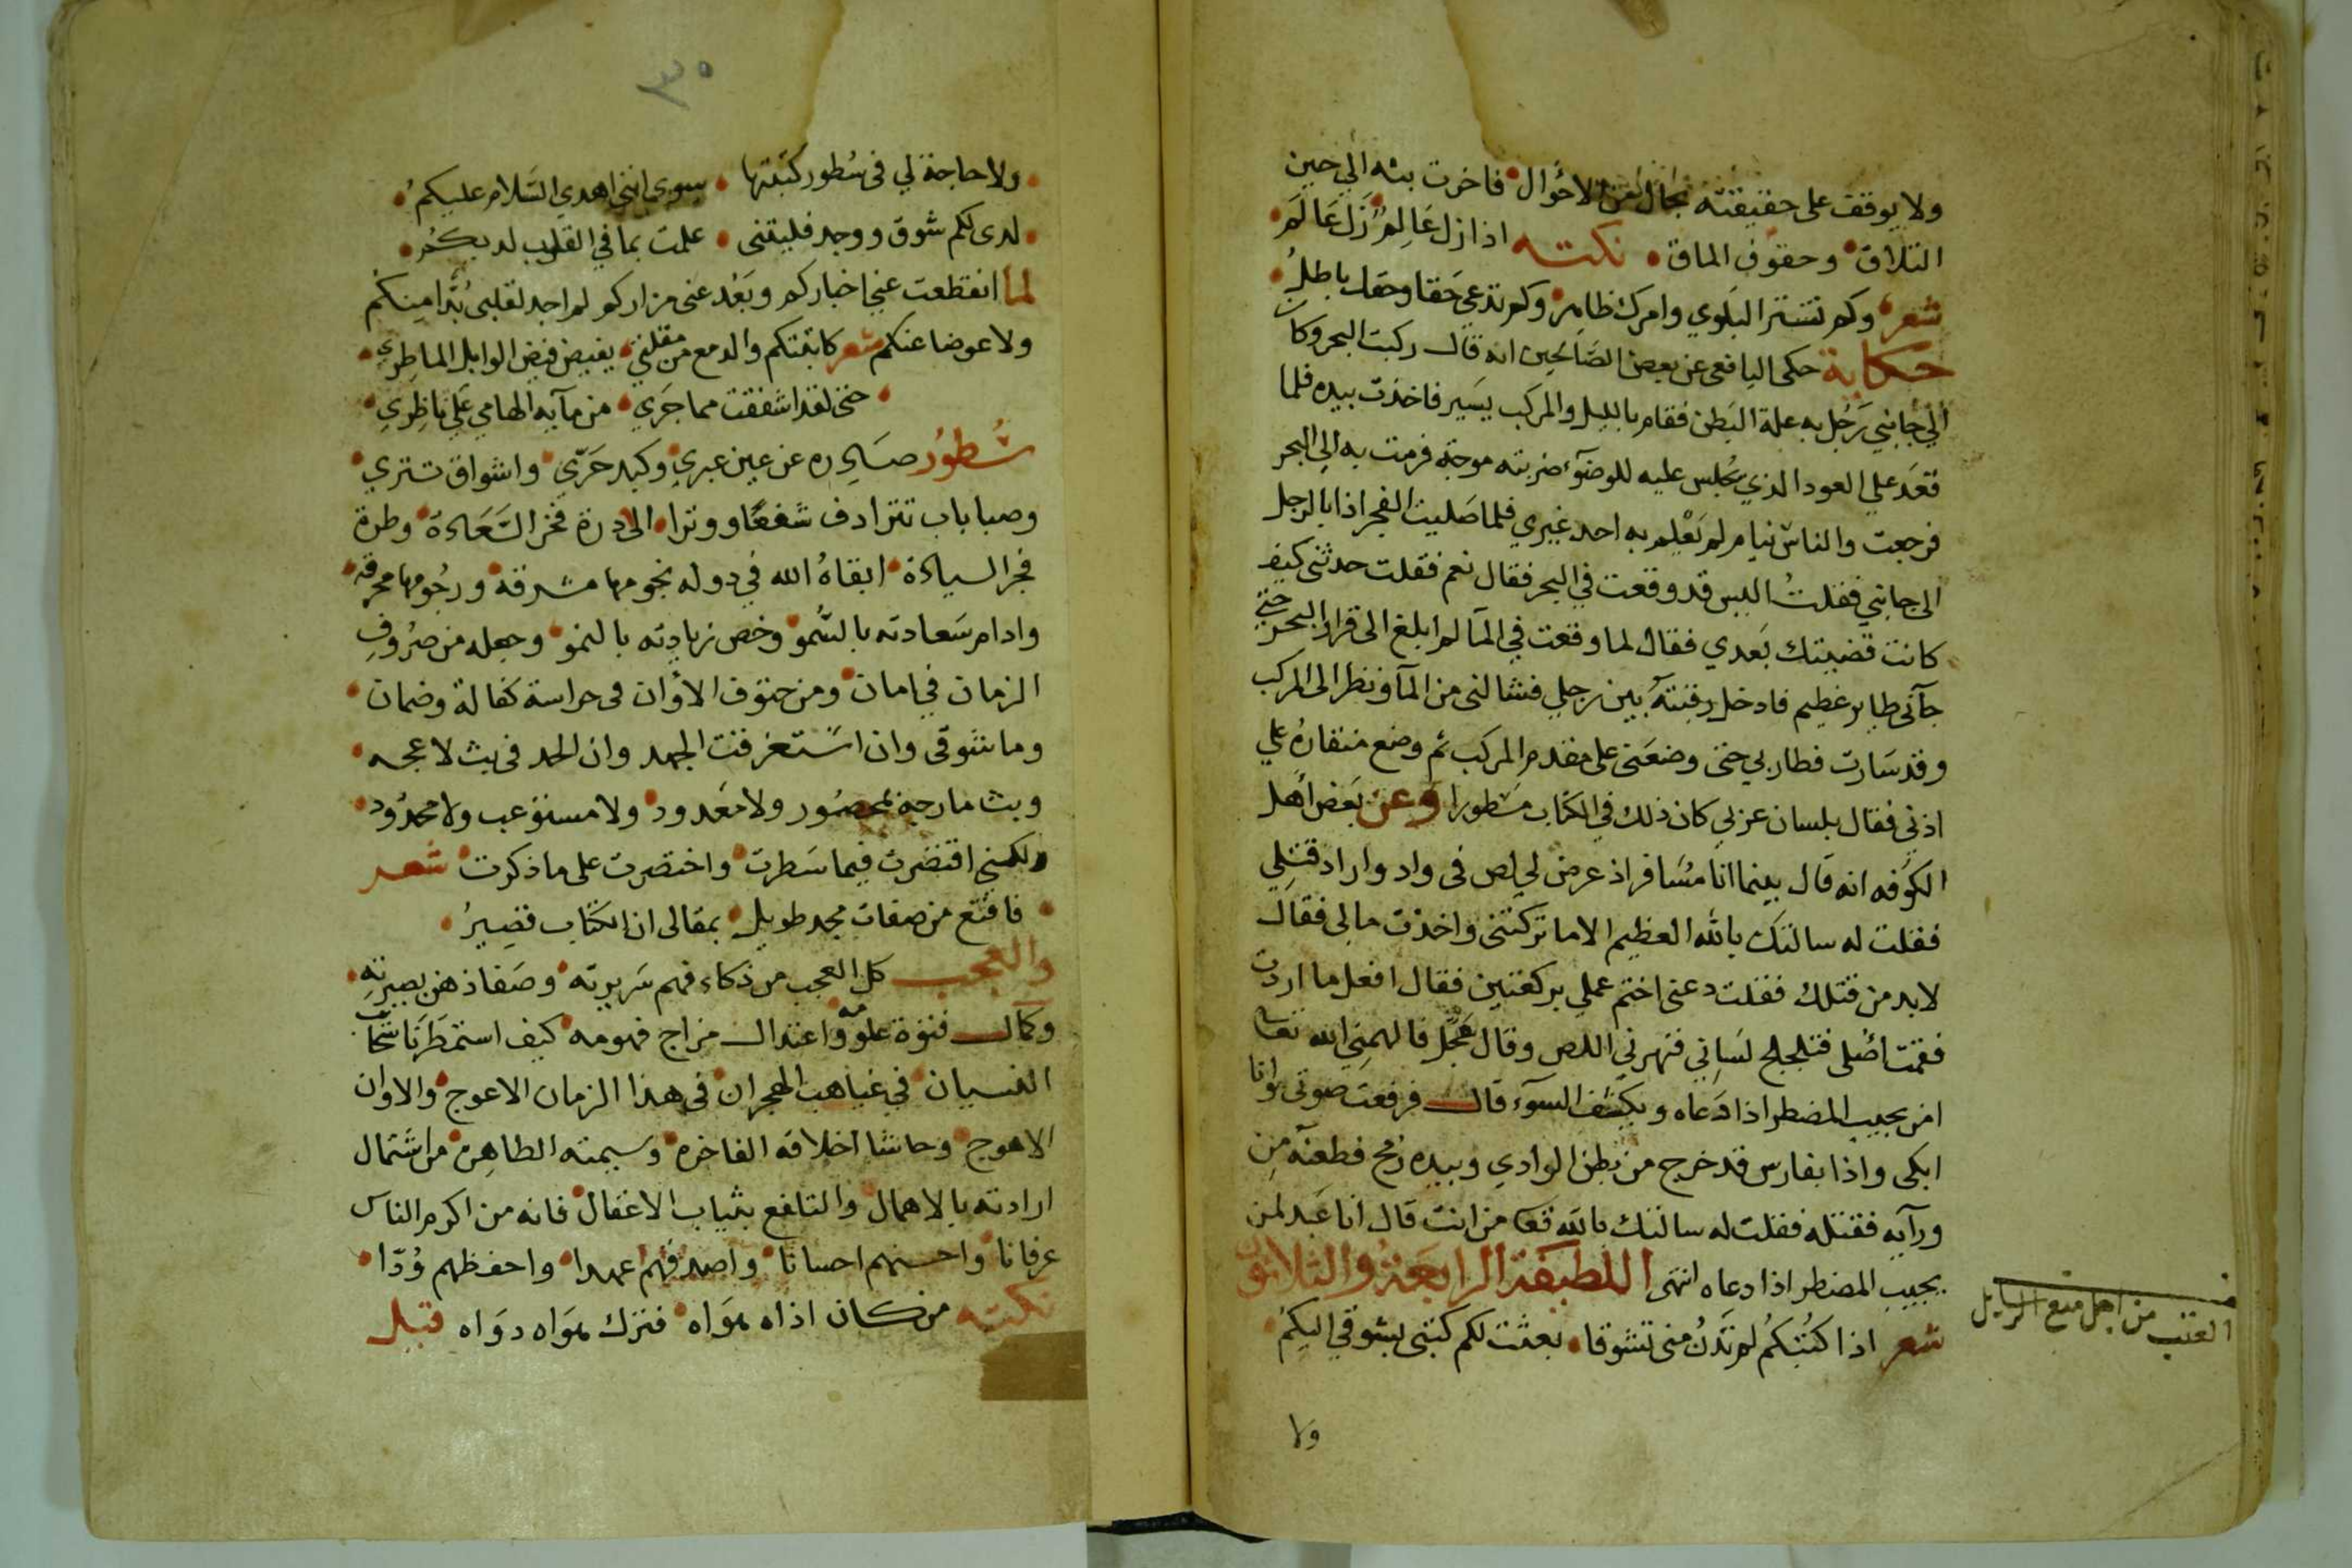 ولا يوقف على حقيقته بحال من الاحوال فاخرت بثه الي حين
التلاق وحقوق الماق نكتـه اذا زل عَالِمٌ زَلَ عَالَم
شعر وكم تتستر البلوي وامرك ظاهر وكم تدعى حقا وحقك باطلُ
حكاية حكى اليافعى عن بعض الصَالحين انه قال ركبت البحر وكان
الي جانبي رَجُل به علة البَطن فقام بالليل والمركب يسَير فاخذت بيده فلما
قعَد علي العود الذي يجُلس عليه للوضوء ضربته موجة فرمت به الي البحر
فرجعت والناسُ نيام لم يَعْلم به احد غيري فلما صَليت الفجر اذا بالرجل
الى جانبي فقلتُ اليس قد وقعت في البحر فقال نعم فقلت حدثنى كيف
كانت قضيتك بَعدي فقال لما وقعت في المآ لم ابلغ الى قرار البحر حتي
جآنى طاير عَظيم فادخل رقبته بين رجلي فشالنى من المآ ونظر الى المركب
وقد سَارت فطار بي حتى وضعَنى على مقدم المركب ثم وضع منقارهُ علي
اذني فقال بلسان عربي كان ذلك في الكتاب مسَطورا وعن بَعض اهل
الكوفه انه قال بينما انا مُسَافر اذ عرض لي لص فى واد واراد قتلِي
فقلت له سالتك بالله العظيم الا ما تركتنى واخذت مالى فقال
لابد من قتلك فقلت دعنى اختم عملي بركعتين فقال افعل ما اردت
فقمت اصُلى فتلجلج لسَاني فنهرني اللص وقال عَجِّل فالهمني الله تعالى
امن يجيب المضطر اذا دَعاه ويكشف السوَء قال فرفعت صوتى وانا
ابكى واذا بفارس قد خرج من بطن الوادي وبيده رُمح فطعنه مِن
ورآيه فقتله فقلت له سالتك بالله تعَا من انت قال انا عَبد لمن
يجيب المضطر اذا دعاه انتهى اللطيفة الرابعَة والثلاثون
العتب من اجل منع الرسايل
شعر اذا كتبُكُم لم تَدنُ منى تشوقا بعثت لكم كتبى بشوقي اليكمُ
ولا
٣٥
ولا حاجة لي فى سُطور كتبتها سوى اننى اهدي السَلام عليكمُ
لدى لكم شوق ووجد فليتنى علمت بما في القلب لديكُم
لما انقطعت عني اخباركم وبَعُد عنى مزاركم لم اجد لقلبى بُدًّا مِنكم
ولا عوضا عنكم شعر كاتبتكم والدمع من مقلتي يفيض فيض الوابل الماطِرِي
حتى لقد اشفقت مما جَرَي من مآيه الهامي عَلي ناظِرِي
سُطُور صَادره عن عين عبري وكبد حَرّي واشواق تتري
وصبابات تترادف شفعًا ووترا الى درة فخر السَعَادة وطرة
فجر السيادة ابقاهُ الله في دوله نجومها مشرقة ورجُومها محرقه
وادام سَعادته بالسُّمو وخص زيادته بالنمو وجعله من صرُوفِ
الزمان في امان ومن حتوف الأوان فى حراسة كفالة وضمان
وما شوقى وان اسْتغرقت الجهد وان الحد فى بث لاعجه
وبث مارجه بمحصُور ولا معَدود ولا مستوَعب ولا محدُود
ولكنني اقتصَرت فيما سَطرت واختصرت على ما ذكرت شعر
فاقتع من صفات مجد طويل بمقالى ان الكتاب قصِيرُ
والعجب كل العجب من ذكاء فهم سَريرته وصَفا ذهن بصيرتهِ
وكمال فتوة علوّه واعتدال مزاج فهومه كيف استمطَرَنا سَحاب
النسيان في غياهب الهجران فى هذا الزمان الاعوج والاوان
الاهوج وحاشا اخلاقه الفاخرة وشيمته الطاهِرة من اشتمال
ارادته بالاهمال والتلفع بثياب الاغفال فانه من اكرم الناس
عرفانا واحسنهم احسانا واصدقهم عهدا واحفظهم وُدّا
نكتـه من كان اذاه هوَاه فترك هوَاه دوَاه قيل